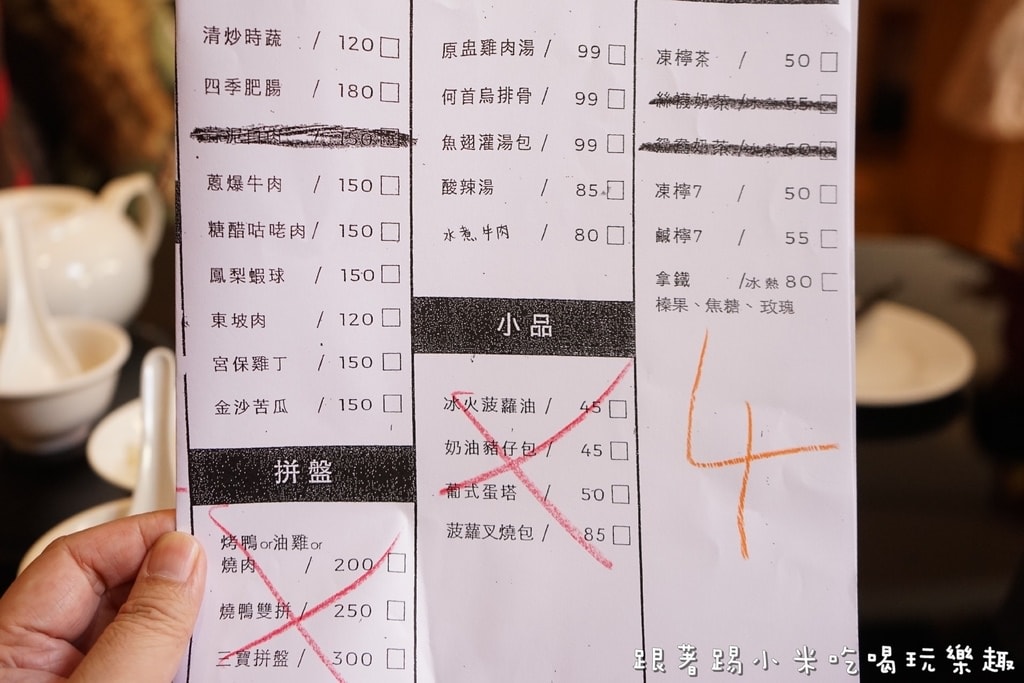 清炒時蔬 / 120 □
四季肥腸 / 180 □
蒜泥白肉 / 150 □
蔥爆牛肉 / 150 □
糖醋咕咾肉 / 150 □
鳳梨蝦球 / 150 □
東坡肉 / 120 □
宮保雞丁 / 150 □
金沙苦瓜 / 150 □
拼盤
烤鴨or油雞or
燒肉 / 200 □
燒鴨雙拼 / 250 □
三寶拼盤 / 300 □
原盅雞肉湯 / 99 □
何首烏排骨 / 99 □
魚翅灌湯包 / 99 □
酸辣湯 / 85 □
水煮牛肉 / 80 □
小品
冰火菠蘿油 / 45 □
奶油豬仔包 / 45 □
葡式蛋塔 / 50 □
菠蘿叉燒包 / 85 □
凍檸茶 / 50 □
絲襪奶茶 /冰熱 55 □
鴛鴦奶茶 /冰熱 60 □
凍檸7 / 50 □
鹹檸7 / 55 □
拿鐵 /冰熱 80 □
榛果、焦糖、玫瑰
4
跟著踢小米吃喝玩樂趣